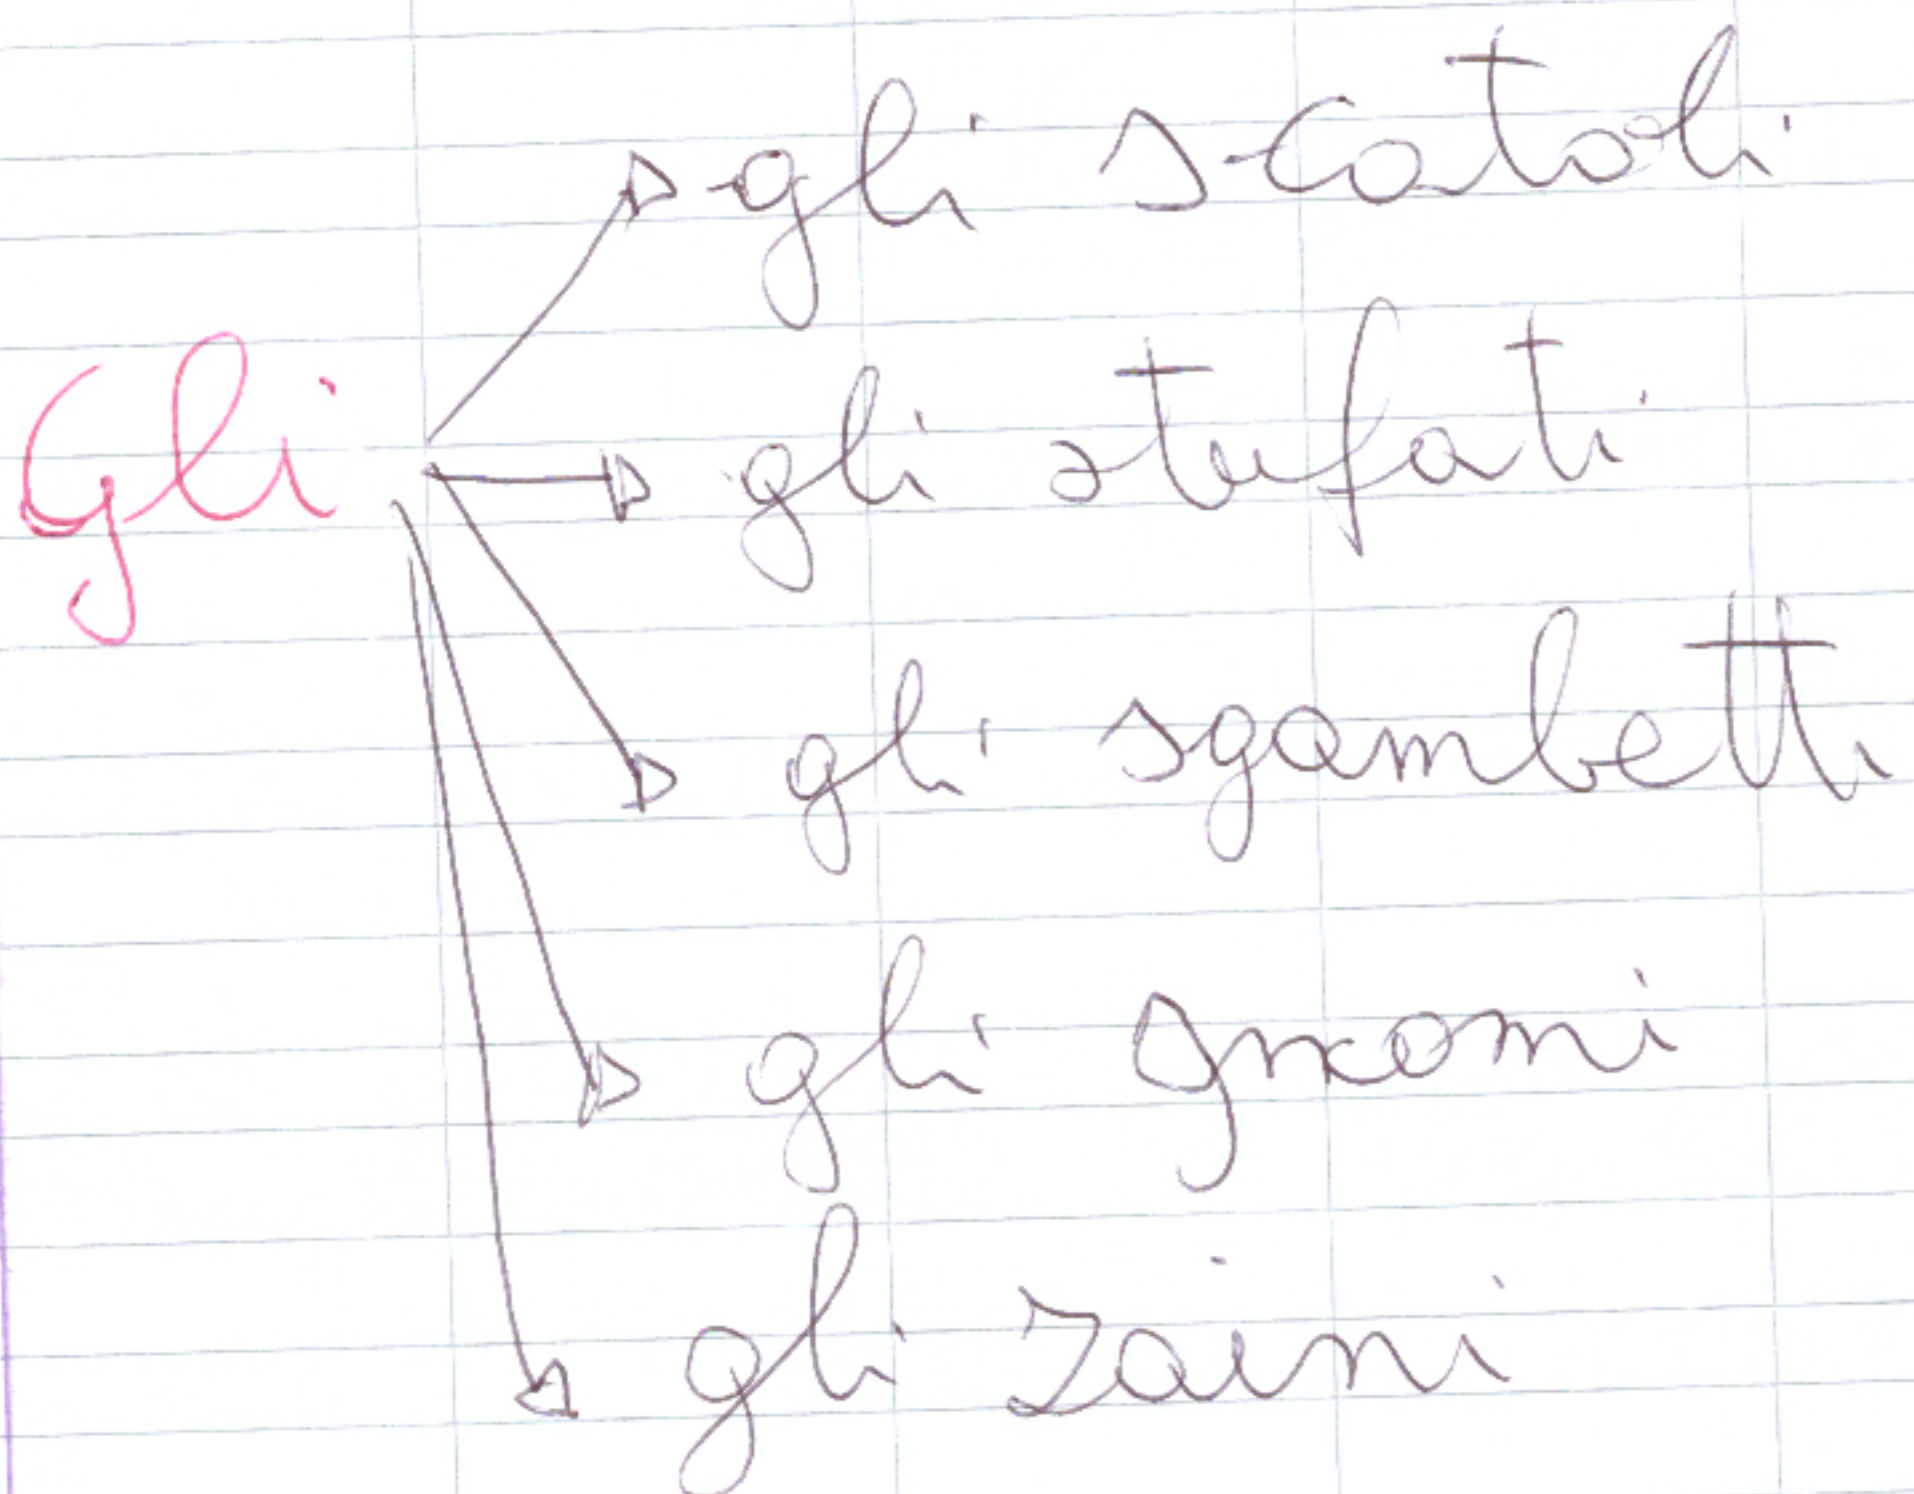 gli scatoli
Gli
gli stufati
gli sgambetti
gli gnomi
gli zaini